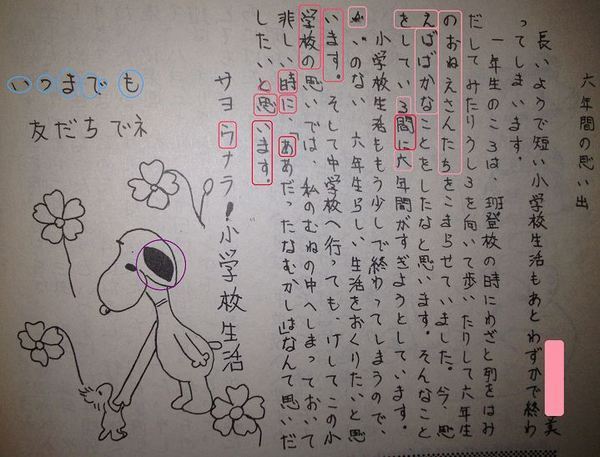 六年間の思い出
美
長いようで短い小学校生活もあとわずかで終わ
ってしまいます。
一年生のころは、班登校の時にわざと列をはみ
だしてみたりうしろを向いて歩いたりして六年生
のおねえさんたちをこまらせていました。今、思
えばばかなことをしたなと思います。そんなこと
をしている間に六年間がすぎようとしています。
小学校生活ももう少しで終わってしまうので、
かいのない六年生らしい生活をおくりたいと思
います。そして中学校へ行っても、けしてこの小
学校の思いでは、私のむねの中へしまっておいて
悲しい時に、「ああだったなむかしは」なんて思いだ
したいと思います。
サヨウナラ!小学校生活
いつまでも
友だちでネ